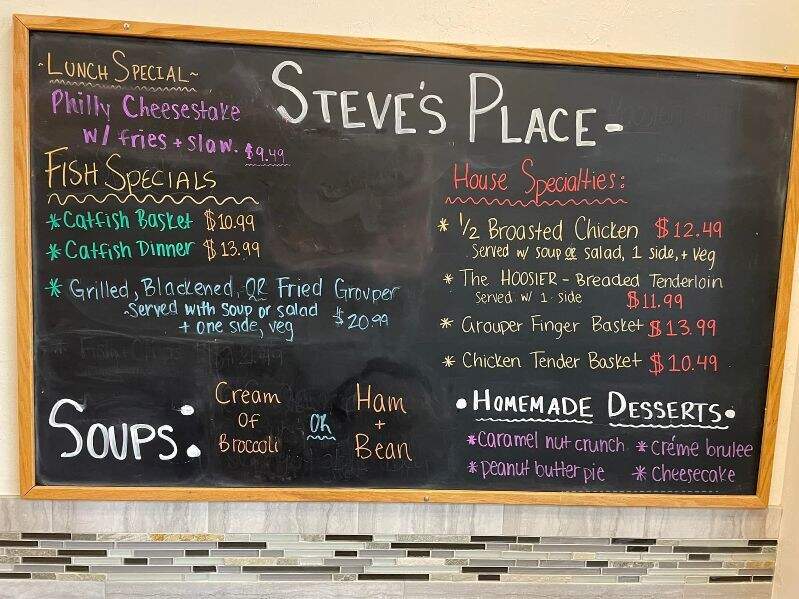 STEVE'S PLACE-
~LUNCH SPECIAL~
Philly Cheesestake
w/ fries + slaw. $9.49
FISH SPECIALS
*Catfish Basket $10.99
*Catfish Dinner $13.99
* Grilled, Blackened, OR Fried Grouper
~Served with soup or salad
+ one side, veg $20.99
House Specialties:
* 1/2 Broasted Chicken $12.49
Served w/ soup or salad, 1 side, + veg
* The HOOSIER - Breaded Tenderloin
Served w/ 1 side $11.99
* Grouper Finger Basket $13.99
* Chicken Tender Basket $10.49
SOUPS:
Cream
Of
Broccoli
OR
Ham
+
Bean
•HOMEMADE DESSERTS•
*Caramel nut crunch *Créme brulee
*peanut butter pie * Cheesecake